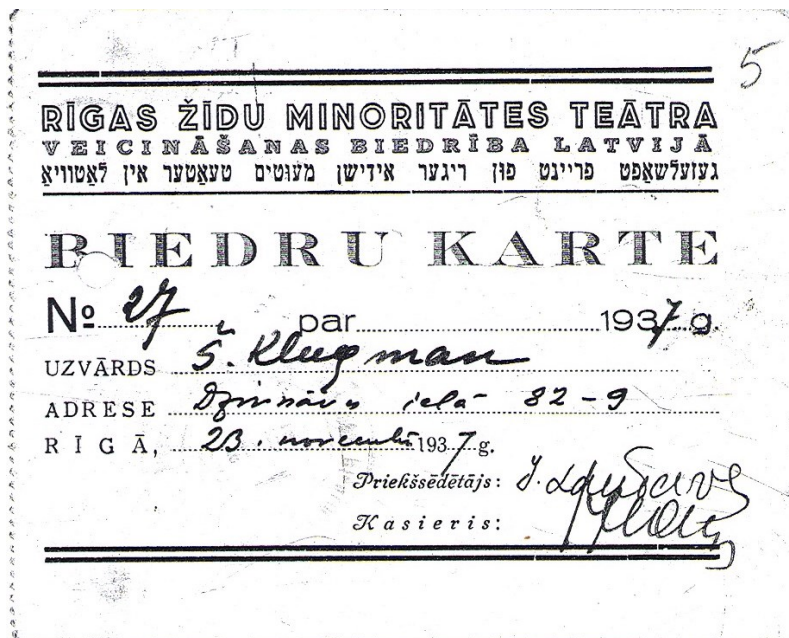 5
RĪGAS ŽĪDU MINORITĀTES TEĀTRA
VEICINĀŠANAS BIEDRĪBA LATVIJĀ
געזעלשאַפט פריינט פון ריגער אידישן מעוטים טעאַטער אין לאַטוויאַ
BIEDRU KARTE
№ 27 par 1937 g.
UZVĀRDS Š. Klugman
ADRESE Dzirnavu ielā 82-9
RĪGĀ, 23. novembrī 1937 g.
Priekšsēdētājs:
Kasieris: